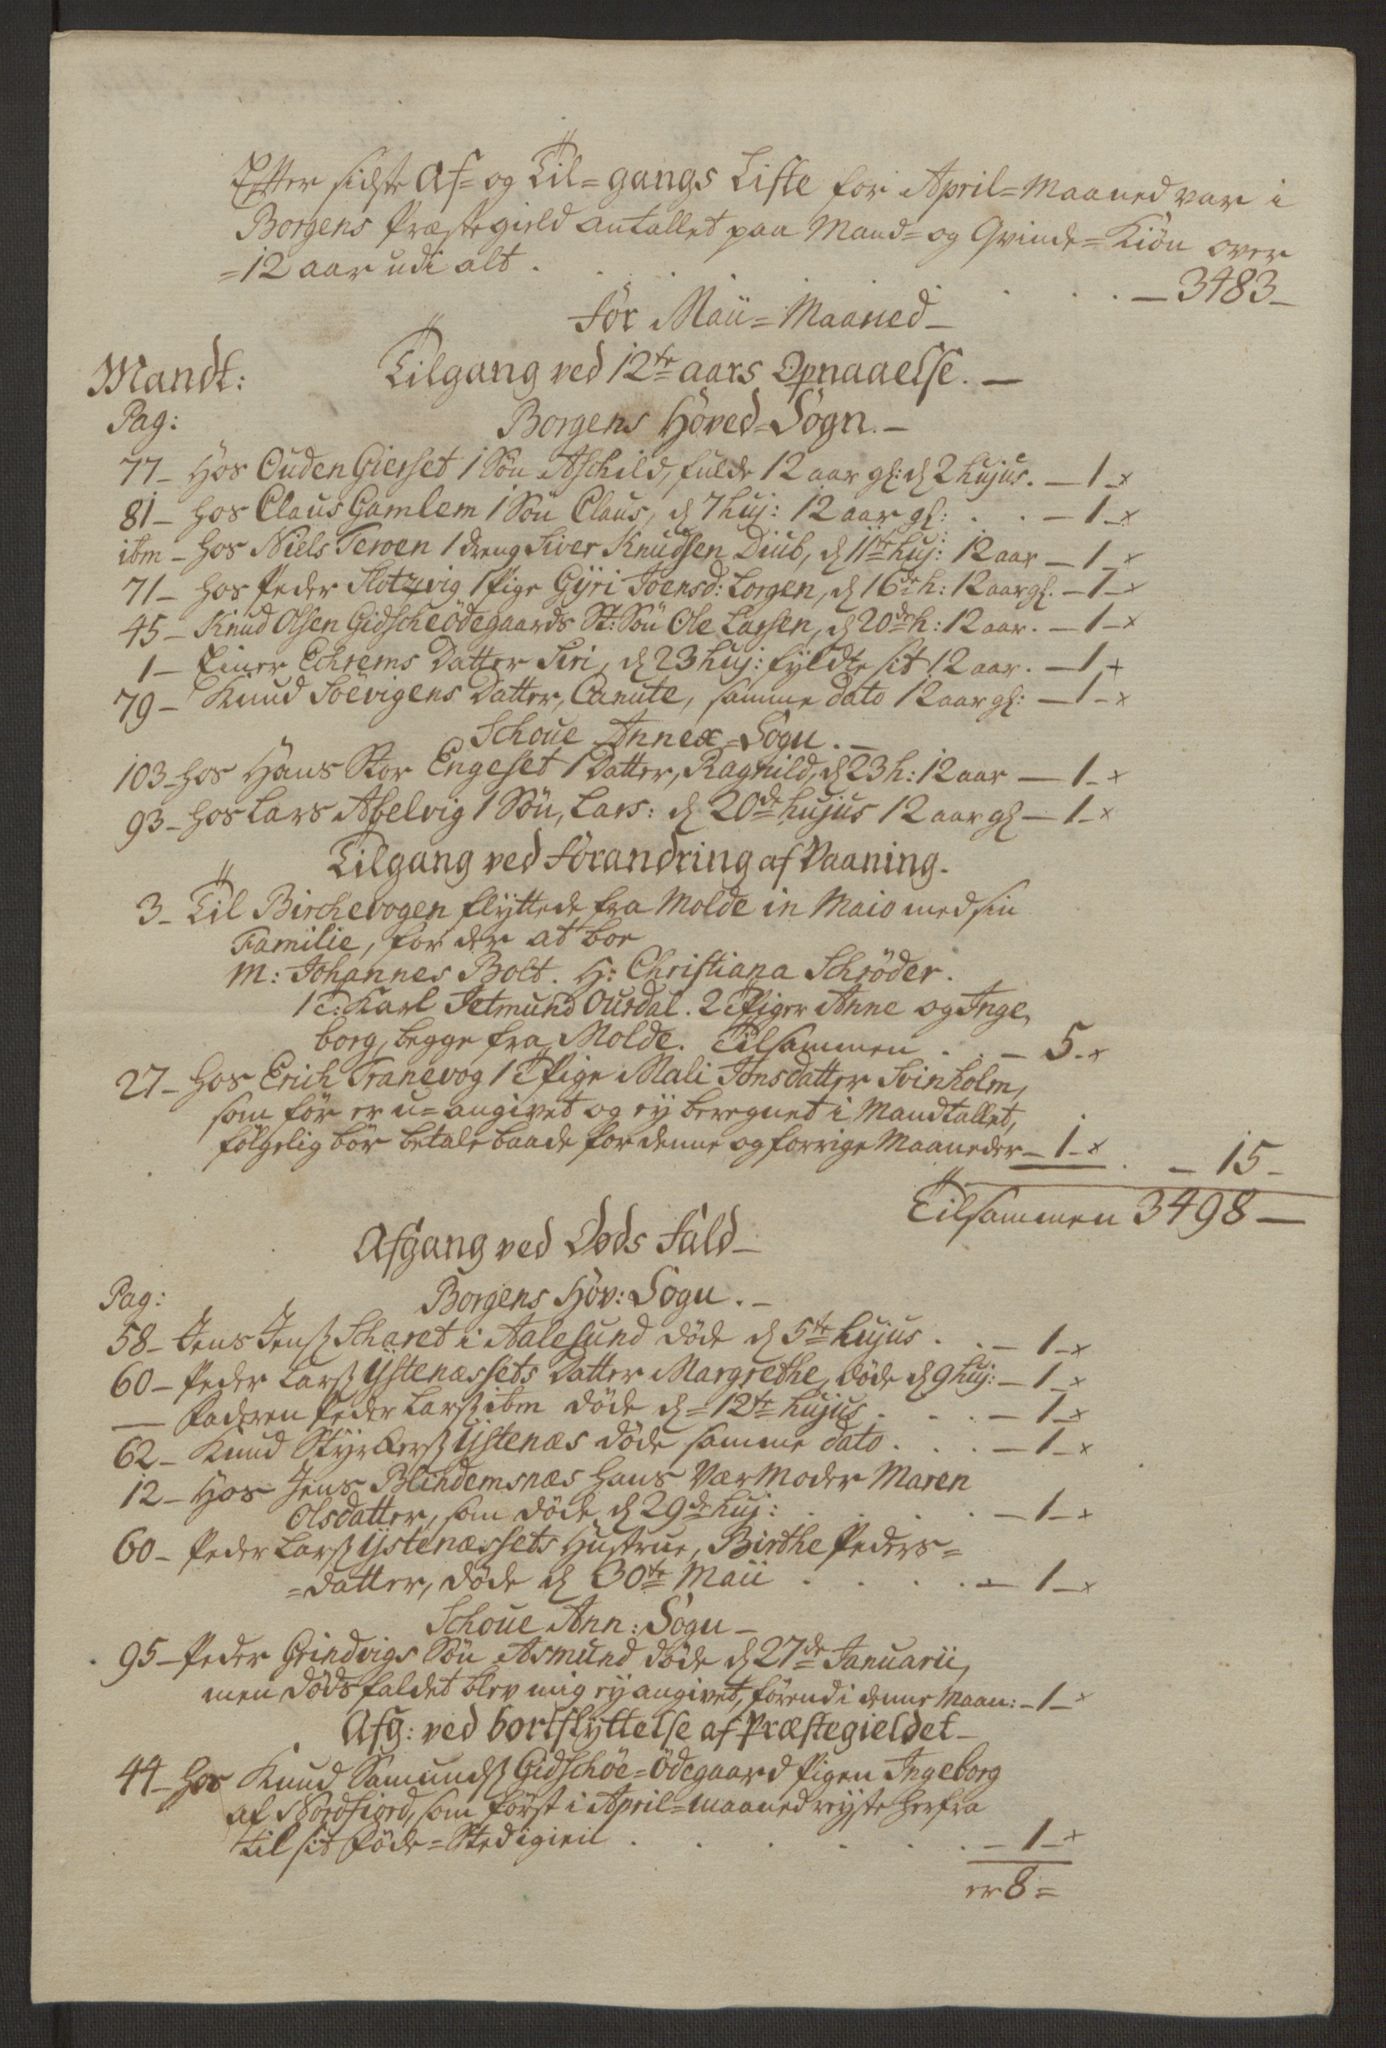 Efter sidste Af- og Til-gangs Liste for April-Maaned var i
Borgens Præstegield Antallet paa Mand- og Qvinde-Kiön over
=12 aar udi alt . . . . . . — 3483 —
För Maii-Maaned —
Mandt: Tilgang ved 12te aars Opnaaelse. —
Pag: Borgens Hoved-Sogn. —
77 — Hos Ouden Gierset 1 Sön Aschild, fulde 12 aar gl: d 2 hujus. — 1 — x
81 — Hos Claus Gamlem 1 Sön Claus, d 7 huj: 12 aar gl: . . — 1 — x
ibm — Hos Niels Teroen 1 dreng Siver Knudsen Diub, d 11te huj: 12 aar — 1 — x
71 — Hos Peder Slotzvig 1 Pige Gÿri Joensd: Lorgen, d 16de h: 12 aar gl. — 1 — x
45 — Knud Olsen Gidscheödegaards St: Sön Ole Larsen, d 20de h: 12 aar. — 1 — x
1 — Einer Echrems Datter Siri, d 23 huj: fyldte sit 12 aar. — 1 +
79 — Knud Soevigens Datter, Canute, samme dato 12 aar gl: — 1 — x
Schoue Annex-Sogn. —
103 — Hos Hans Stor Engeset 1 Datter, Ragnild, d 23 h: 12 aar — 1 — x
93 — Hos Lars Aßelvig 1 Sön, Lars: d 20de hujus 12 aar gl — 1 — x
Tilgang ved Forandring af Vaaning.
3 — Til Birchevogen flÿttede fra Molde in Maio med sin
Familie, for der at boe
M: Johannes Bolt. H: Christiana Schröder.
1 T: Karl Jetmund Ourdal. 2 T Piger Anne og Inge,
borg, begge fra Molde. Tilsammen . . — 5 — x
27 — Hos Erich Tranevog 1 T Pige Mali Jonsdatter Svinholm,
som för er u-angivet og ey beregnet i Mandtallet,
fölgelig bör betale baade for denne og forrige Maaneder — 1 — x . — 15 —
Tilsammen 3498 —
Afgang ved Döds Fald —
Pag: Borgens Hov: Sogn. —
58 — Jens Jenß Scharet i Aalesund döde d 5te hujus . . — 1 — x
60 — Peder Larß Ÿstenæssets Datter Margrethe, döde d 9 huj: — 1 — x
— Faderen Peder Larß ibm döde d = 12te hujus . . . — 1 — x
62 — Knud Stÿrkerß Ÿstenæs döde samme dato . . . — 1 — x
12 — Hos Jens Blindemsnæs hans Vær Moder Maren
Olsdatter, som döde d 29de huj: . . . . — 1 — x
60 — Peder Larß Ÿstenæssets Hustrue, Birthe Peders=
=datter, döde d 30te Maii . . . . — 1 — x
Schoue Ann: Sogn —
95 — Peder Grindvigs Sön Asmund döde d 27de Januarii,
men dödsfaldet blev mig ey angivet, förend i denne Maan: — 1 — x
Afg: ved bortflÿttelse af Præstegieldet —
44 — Hos Knud Samundß Gidschöe-Ödegaard Pigen Ingeborg
af Nordfiord, som först i April-maaned reyste herfra
til sit Föde-Sted igien . . . . . — 1 — x
er 8 =